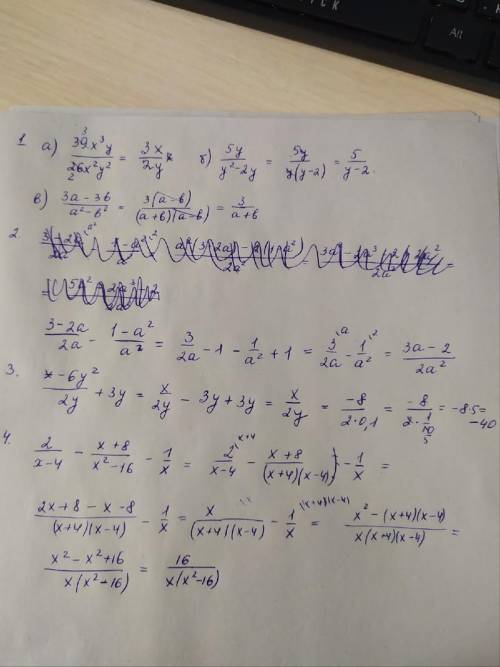 1 а) 39x³y / 26x²y² = 3x / 2y б) 5y / y²-2y = 5y / y(y-2) = 5 / y-2.
3 2
в) 3a-3b / a²-b² = 3(a-b) / (a+b)(a-b) = 3 / a+b
2.
3-2a / 2a - 1-a² / a² = 3 / 2a - 1 - 1 / a² + 1 = 3 \a / 2a - 1 \2 / a² = 3a-2 / 2a²
3. x-6y² / 2y + 3y = x / 2y - 3y + 3y = x / 2y = -8 / 2·0,1 = -8 / 2·1/10 = -8·5=
5 -40
4. 2 / x-4 - x+8 / x²-16 - 1 / x = 2 \x+4 / x-4 - x+8 / (x+4)(x-4) ) - 1 / x =
2x+8-x-8 / (x+4)(x-4) - 1 / x = x / (x+4)(x-4) - 1 \(x+4)(x-4) / x = x²-(x+4)(x-4) / x(x+4)(x-4) =
x²-x²+16 / x(x²-16) = 16 / x(x²-16)
Alt